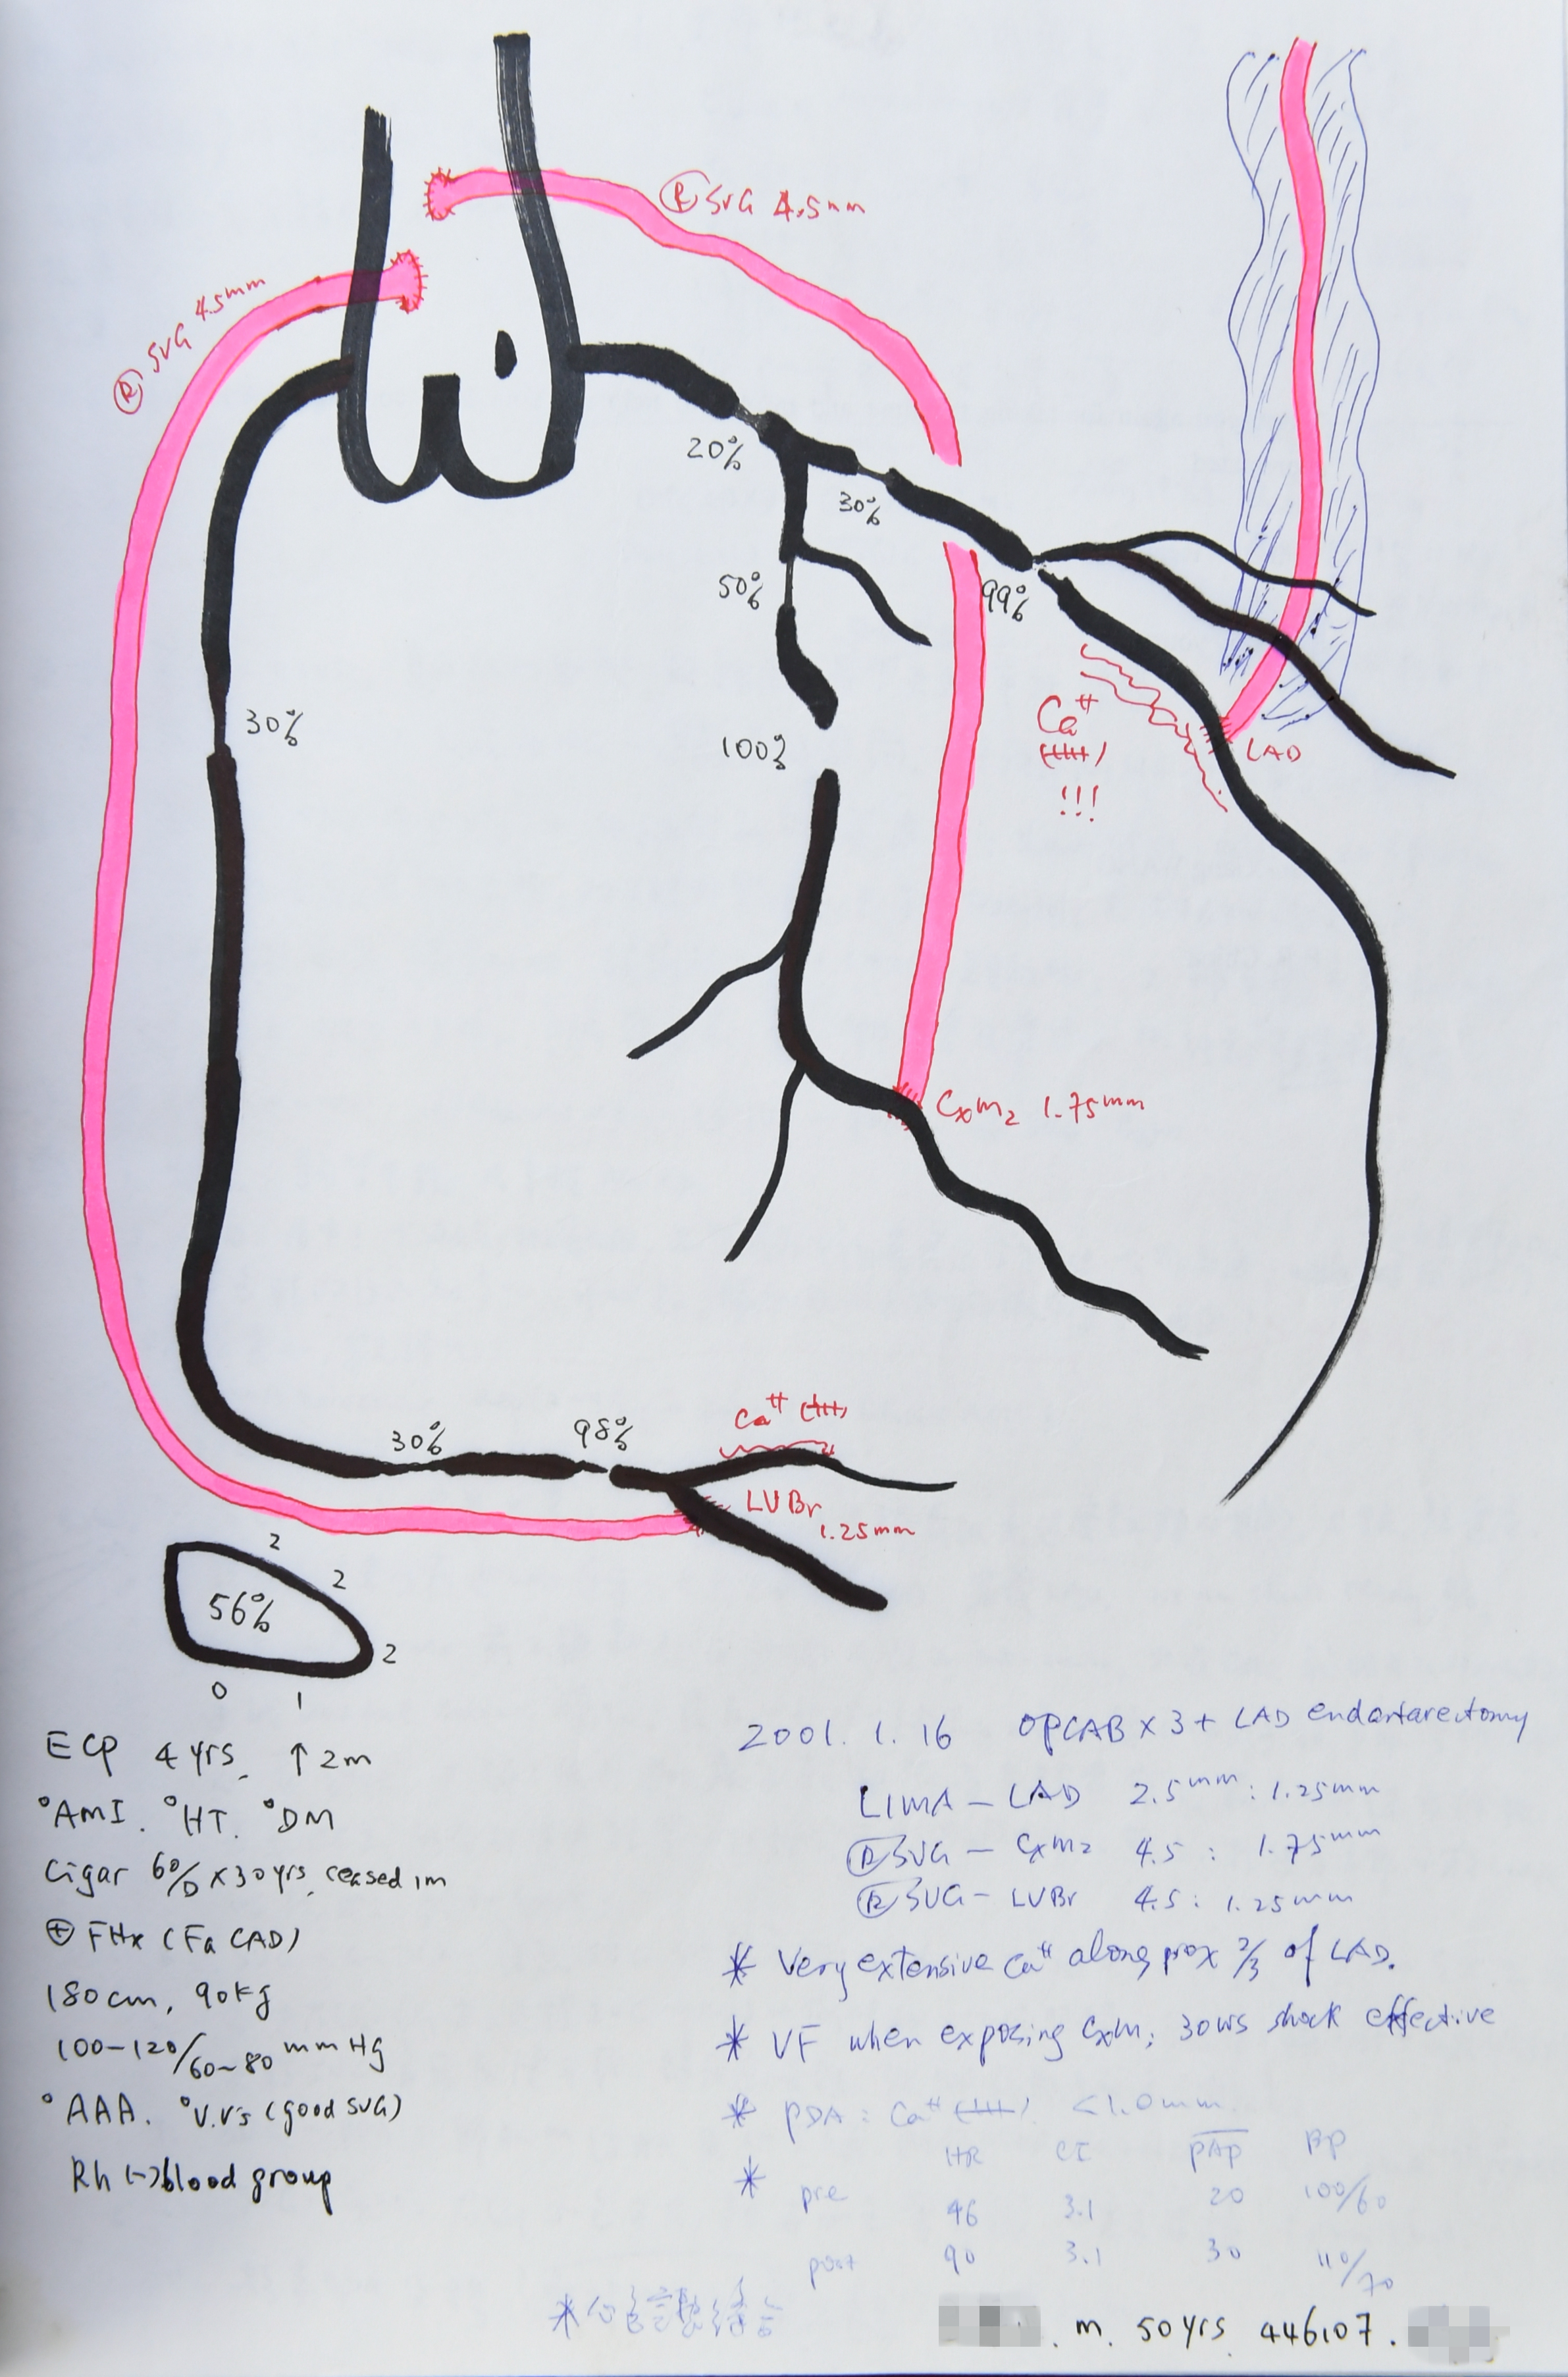 Ⓡ SVG 4.5mm
Ⓡ SVG 4.5mm
20%
30%
50%
99%
Ca⁺⁺
(++++)
!!!
LAD
30%
100%
CxM₂ 1.75mm
30%
98%
Ca⁺⁺ (+++)
LVBr
1.25mm
2
2
56%
2
0
1
ECP 4 yrs, ↑2m
°AMI. °HT. °DM
Cigar 60/D x 30 yrs, ceased 1m
⊕ FHx (Fa CAD)
180cm, 90kg
100-120/60~80 mmHg
°AAA. °V.V's (good SVG)
Rh (-) blood group
2001. 1. 16 OPCAB x 3 + LAD endartarectomy
LIMA - LAD 2.5mm : 1.25mm
Ⓡ SVG - CxM₂ 4.5 : 1.75mm
Ⓡ SVG - LVBr 4.5 : 1.25mm
* Very extensive Ca⁺⁺ along prox 2/3 of LAD.
* VF when exposing CxM; 30WS shock effective
* PDA : Ca⁺⁺ (++++) <1.0mm.
HR CI PAP BP
* pre 46 3.1 20 100/60
post 90 3.1 30 110/70
. m. 50 yrs 446107.